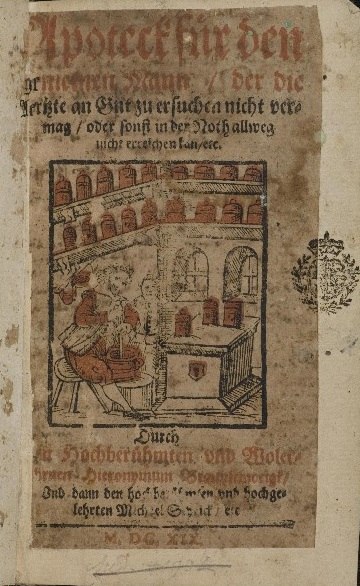 Apoteck für den
gemeinen Mann / der die
Aertzte an Gut zu ersuchen nicht ver-
mag / oder sonst in der Noth allweg
nicht erreichen kan / etc.
Durch
Hochberühmten vnd Woler-
Hieronymum Braunschweigk /
Vnd dann den hochberühmten vnd hochge-
lehrten Michael Schrick / etc
M. DC. XIX